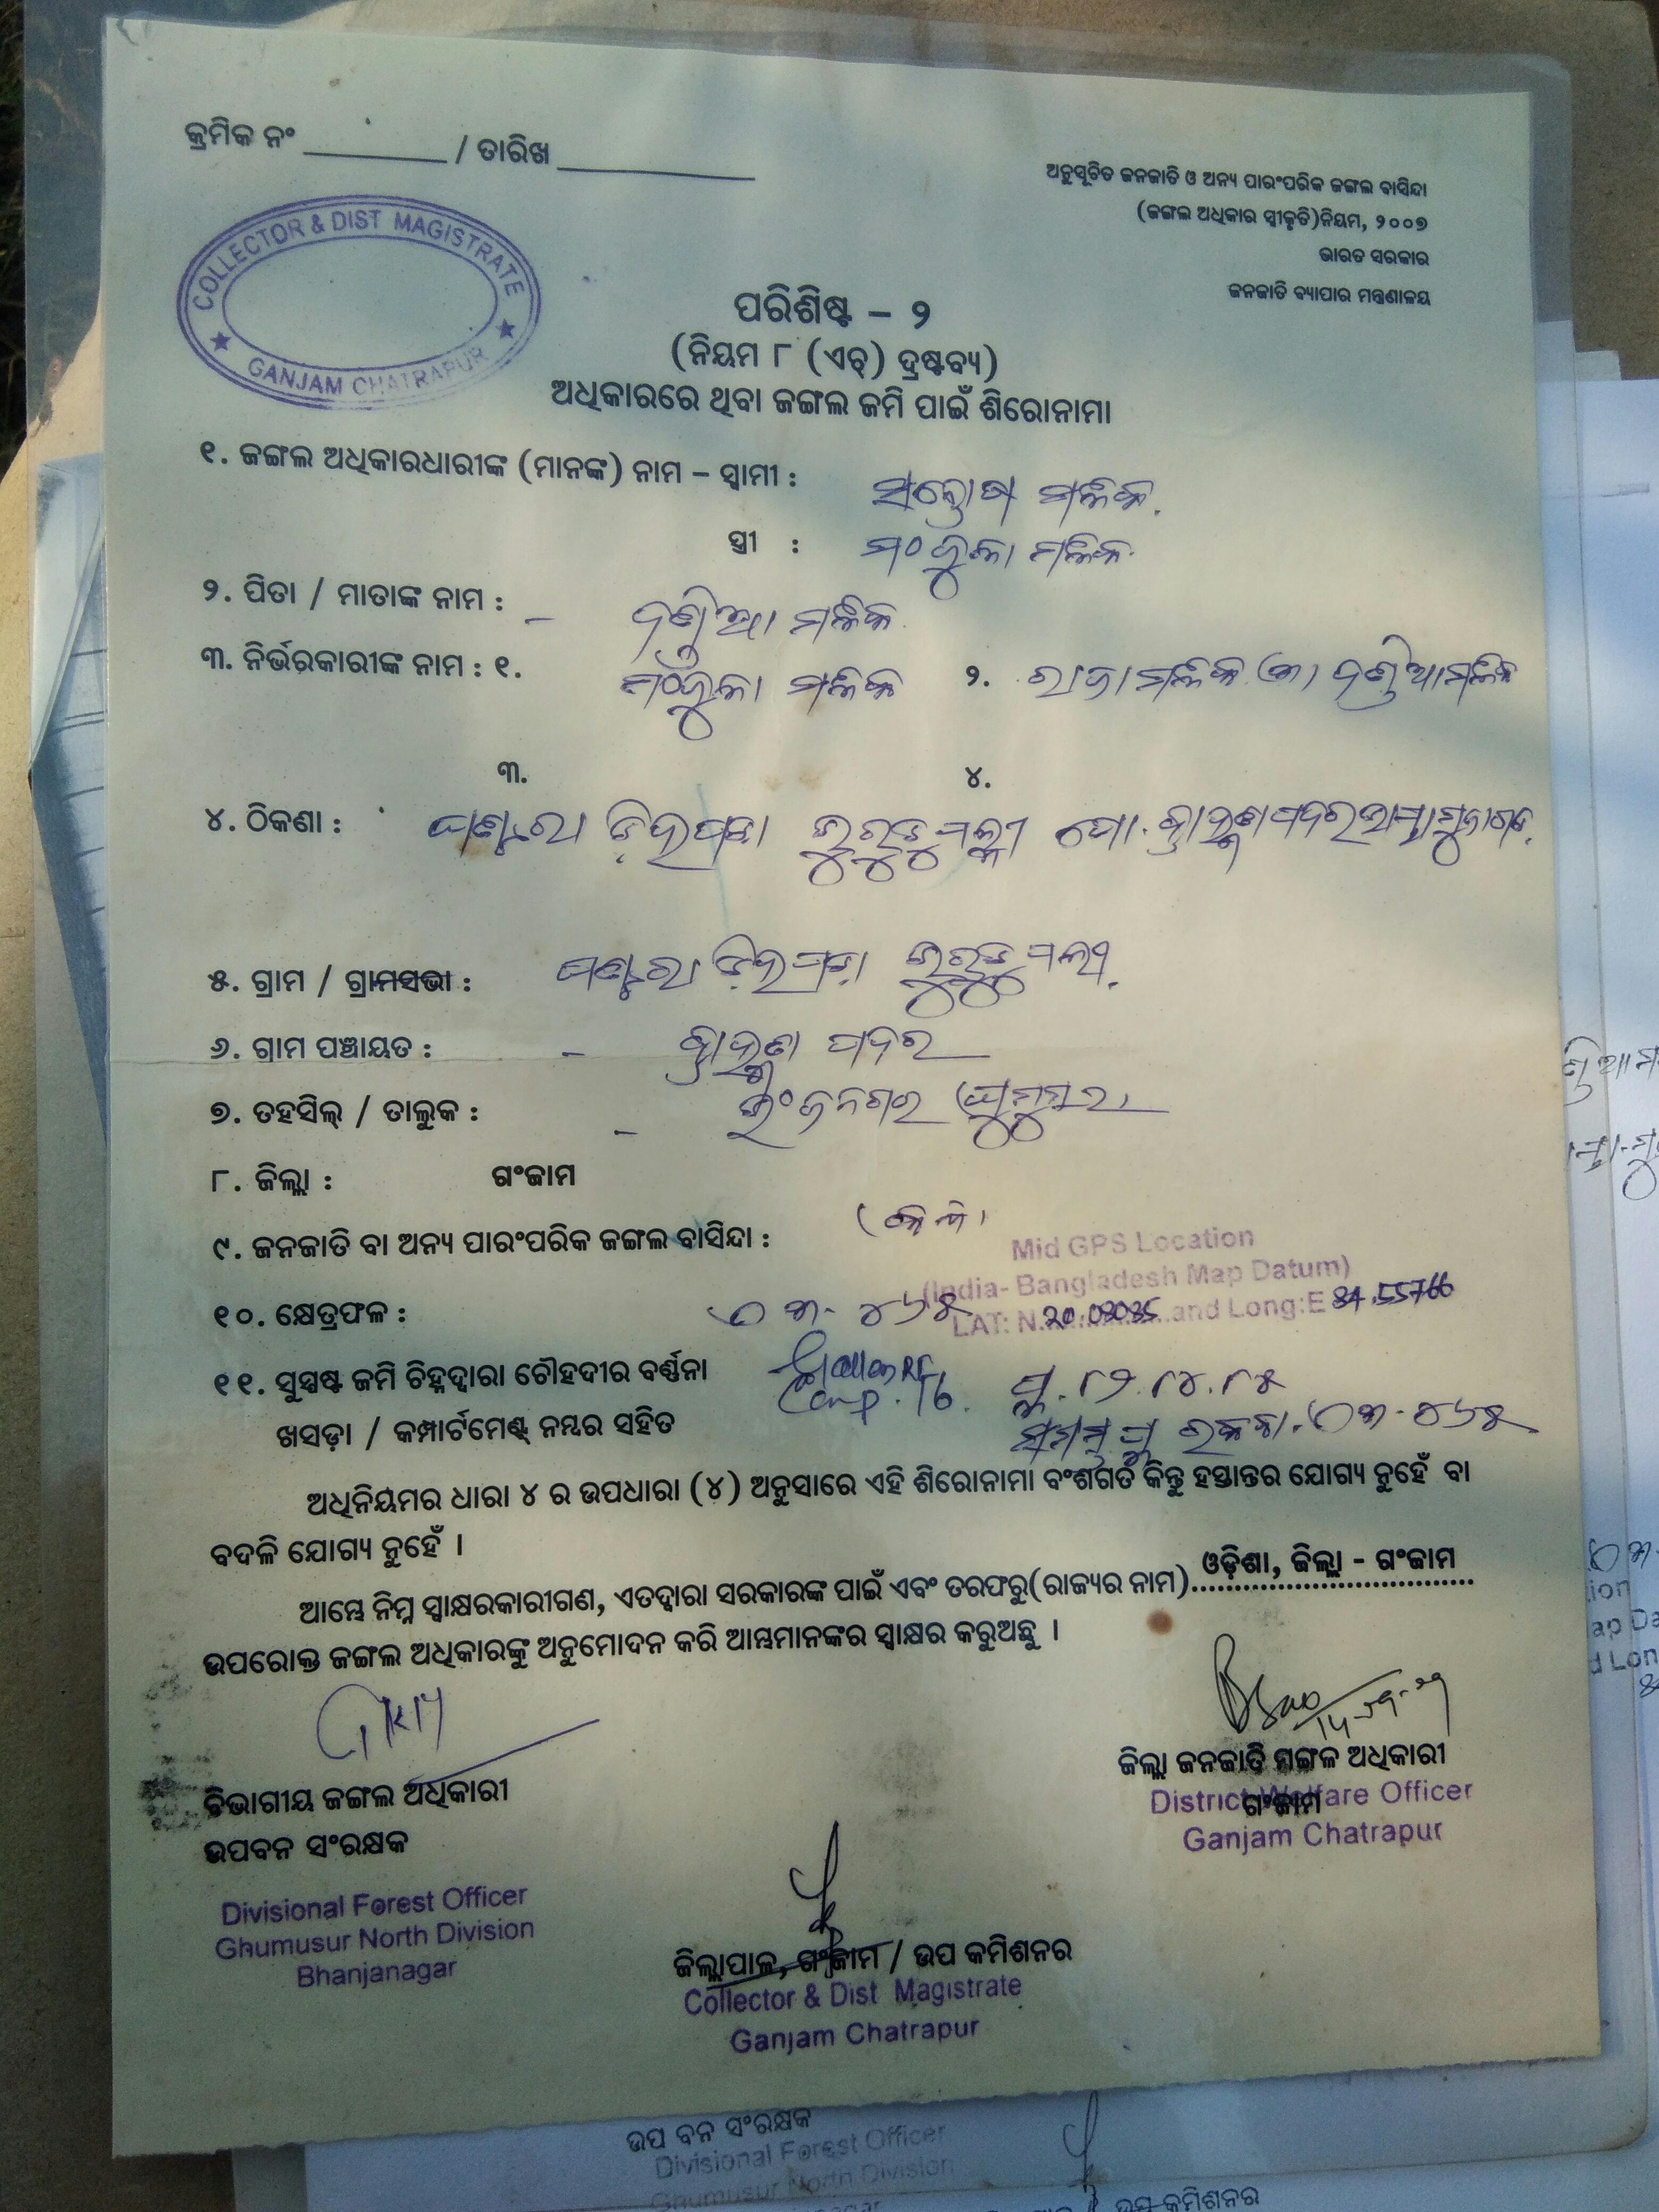 କ୍ରମିକ ନଂ / ତାରିଖ
ଅନୁସୂଚିତ ଜନଜାତି ଓ ଅନ୍ୟ ପାରଂପରିକ ଜଙ୍ଗଲ ବାସିନ୍ଦା
(ଜଙ୍ଗଲ ଅଧିକାର ସ୍ୱୀକୃତି)ନିୟମ, ୨୦୦୭
ଭାରତ ସରକାର
ଜନଜାତି ବ୍ୟାପାର ମନ୍ତ୍ରଣାଳୟ
COLLECTOR & DIST MAGISTRATE
GANJAM CHATRAPUR
ପରିଶିଷ୍ଟ – ୨
(ନିୟମ ୮ (ଏଚ୍) ଦ୍ରଷ୍ଟବ୍ୟ)
ଅଧିକାରରେ ଥିବା ଜଙ୍ଗଲ ଜମି ପାଇଁ ଶିରୋନାମା
୧. ଜଙ୍ଗଲ ଅଧିକାରଧାରୀଙ୍କ (ମାନଙ୍କ) ନାମ – ସ୍ୱାମୀ : ସନ୍ତୋଷ ମଲ୍ଲିକ
ସ୍ତ୍ରୀ : ମଂଜୁଳା ମଲ୍ଲିକ
୨. ପିତା / ମାତାଙ୍କ ନାମ : – ଦଣ୍ଡିଆ ମଲ୍ଲିକ
୩. ନିର୍ଭରକାରୀଙ୍କ ନାମ : ୧. ମଂଜୁଳା ମଲ୍ଲିକ ୨. ରାଜା ମଲ୍ଲିକ ଦଣ୍ଡିଆ ମଲ୍ଲିକ
୩. ୪.
୪. ଠିକଣା : ପୋ. ବ୍ରାହ୍ମଣ ପଦର
୫. ଗ୍ରାମ / ଗ୍ରାମସଭା :
୬. ଗ୍ରାମ ପଞ୍ଚାୟତ : – ବ୍ରାହ୍ମଣ ପଦର
୭. ତହସିଲ୍ / ତାଲୁକ : – ଭଂଜନଗର
୮. ଜିଲ୍ଲା : ଗଂଜାମ
୯. ଜନଜାତି ବା ଅନ୍ୟ ପାରଂପରିକ ଜଙ୍ଗଲ ବାସିନ୍ଦା :
Mid GPS Location
(India- Bangladesh Map Datum)
୧୦. କ୍ଷେତ୍ରଫଳ : ୪୬୫
LAT: N. and Long:E 84.55766
୧୧. ସୁସ୍ପଷ୍ଟ ଜମି ଚିହ୍ନଦ୍ୱାରା ଚୌହଦୀର ବର୍ଣ୍ଣନା
ଖସଡ଼ା / କମ୍ପାର୍ଟମେଣ୍ଟ୍ ନମ୍ୱର ସହିତ Comp. ପ୍ଲ. ୮୨.୮୪.୮୫
ଅଧିନିୟମର ଧାରା ୪ ର ଉପଧାରା (୪) ଅନୁସାରେ ଏହି ଶିରୋନାମା ବଂଶଗତ କିନ୍ତୁ ହସ୍ତାନ୍ତର ଯୋଗ୍ୟ ନୁହେଁ ବା
ବଦଳି ଯୋଗ୍ୟ ନୁହେଁ ।
ଆମ୍ଭେ ନିମ୍ନ ସ୍ୱାକ୍ଷରକାରୀଗଣ, ଏତଦ୍ୱାରା ସରକାରଙ୍କ ପାଇଁ ଏବଂ ତରଫରୁ(ରାଜ୍ୟର ନାମ) ଓଡ଼ିଶା, ଜିଲ୍ଲା - ଗଂଜାମ
ଉପରୋକ୍ତ ଜଙ୍ଗଲ ଅଧିକାରଙ୍କୁ ଅନୁମୋଦନ କରି ଆମ୍ଭମାନଙ୍କର ସ୍ୱାକ୍ଷର କରୁଅଛୁ ।
ବିଭାଗୀୟ ଜଙ୍ଗଲ ଅଧିକାରୀ
ଉପବନ ସଂରକ୍ଷକ
Divisional Forest Officer
Ghumusur North Division
Bhanjanagar
ଜିଲ୍ଲା ଜନଜାତି ମଙ୍ଗଳ ଅଧିକାରୀ
ଗଂଜାମ
District Welfare Officer
Ganjam Chatrapur
ଜିଲ୍ଲାପାଳ, ଗଂଜାମ / ଉପ କମିଶନର
Collector & Dist Magistrate
Ganjam Chatrapur
ଉପ ବନ ସଂରକ୍ଷକ
Divisional Forest Officer
Ghumusur North Division
ଉପ କମିଶନର